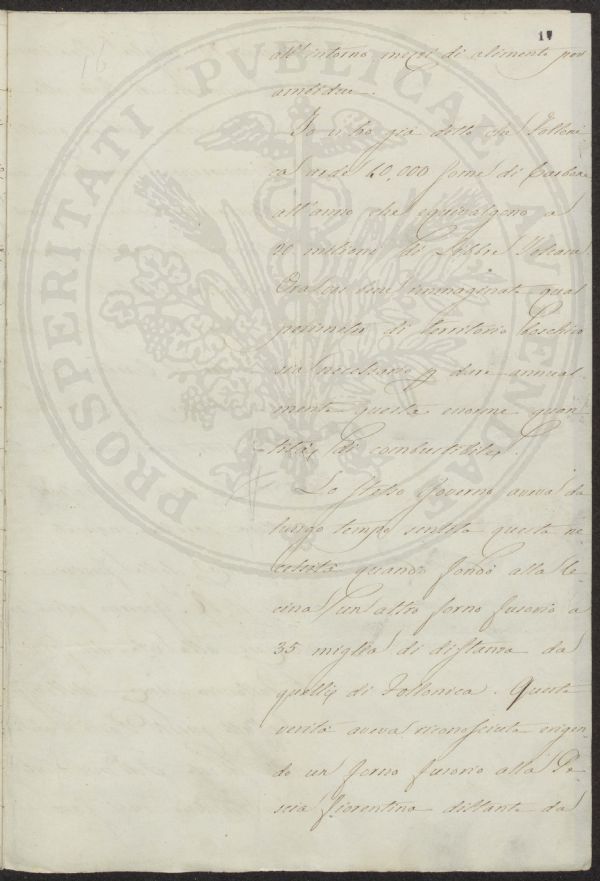 17
16
all'intorno mezzi di alimento per
ambidue.
Io vi ho già detto che Folloni
ca arde 40,000 some di carbone
all'anno che equivalgono a
20 milioni di Libbre Toscane
Ora Lei deve immaginare qual
perimetro di territorio boschivo
sia necessario p dare annual-
mente questa enorme quan
tità di combustibile.
Lo stesso Governo aveva da
lungo tempo sentita questa ne
cessità quando fondò alla Ce
cina un altro forno fusorio a
35 miglia di distanza da
quelli di Follonica. Questa
verità aveva riconosciuta erigen
do un forno fusorio alla Pe-
scia fiorentina distante da
PROSPERITATI PVBLICAE AVGENDAE